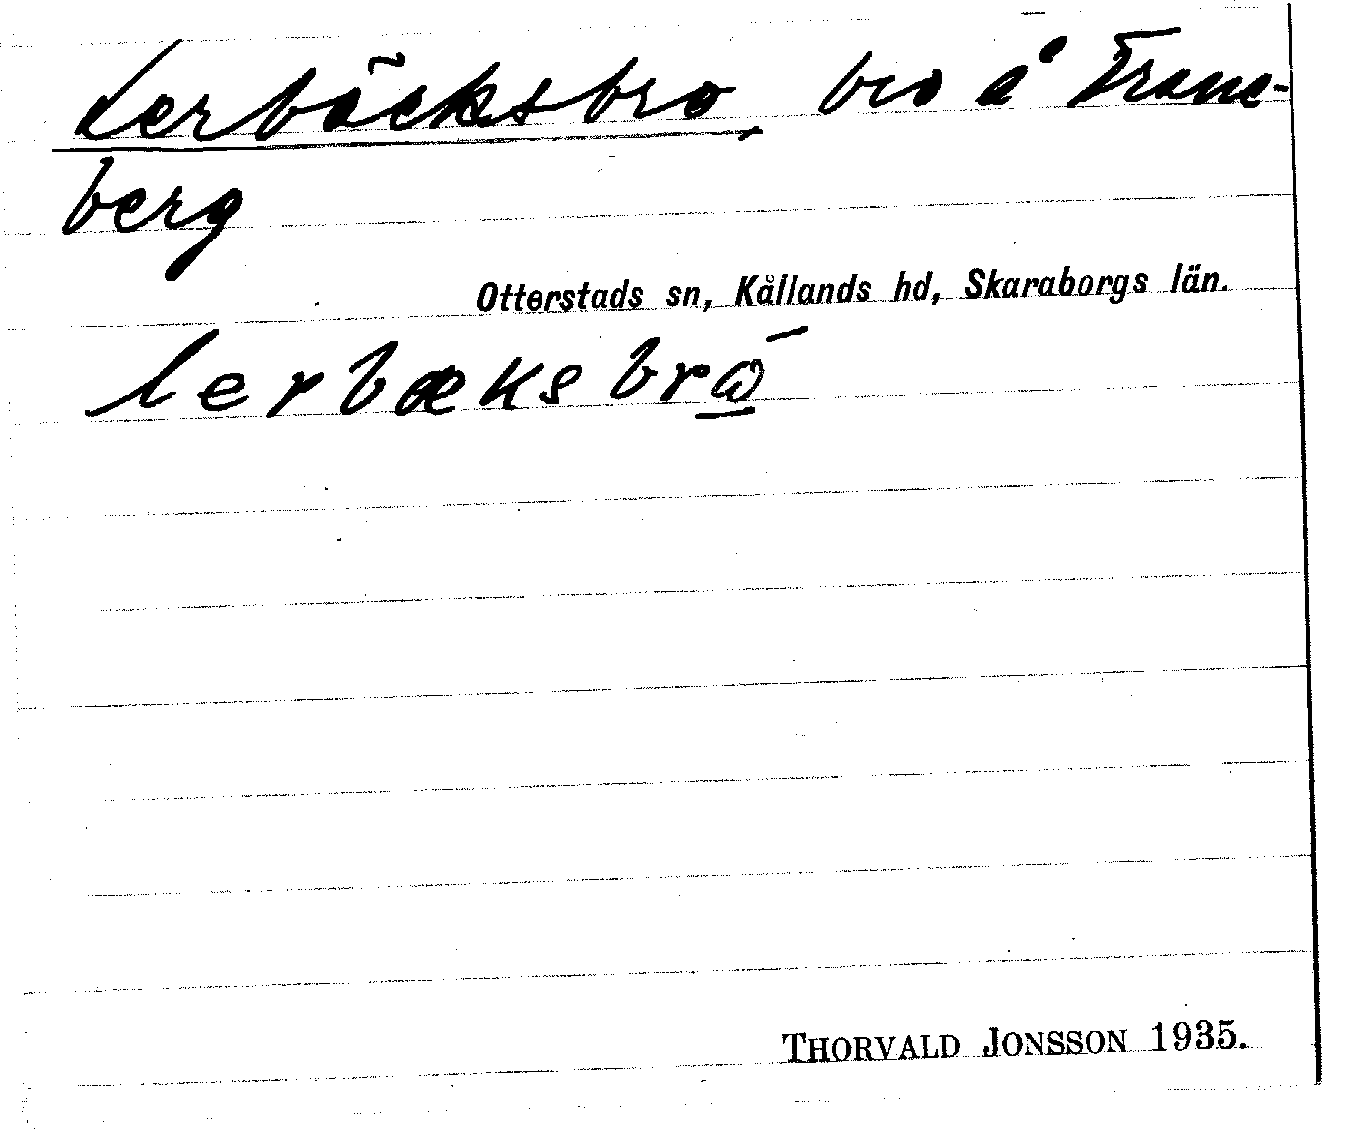 Lerbäcksbro, bro å Trane-
berg
Otterstads sn, Kållands hd, Skaraborgs län.
lerbæksbrώ̲
THORVALD JONSSON 1935.